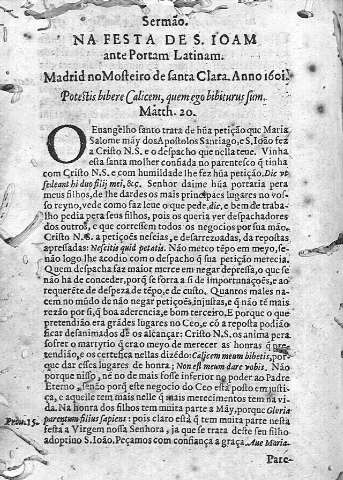 Sermão.
NA FESTA DE S. IOAM
ante Portam Latinam.
Madrid no Mosteiro de santa Clara. Anno 1601.
Potestis bibere Calicem, quem ego bibiturus sum.
Matth. 20.
O Euangelho santo trata de hũa petição que Maria
Salome mãy dos Apostolos Santiago, e S. Ioão fez
a Cristo N. S. e o despacho que nella teue. Vinha
esta santa molher confiada no parentesco q̃ tinha
com Cristo N. S. e com humildade lhe fez hũa petição. Dic ut
sedeant hi duo filij mei, &c. Senhor daime hũa portaria pera
meus filhos, de lhe dardes os mais principaes lugares no vosso
reyno, vede como faz lete o que pede, dic, e bem de trabalho
pedia pera seus filhos, pois os queria ver despachadores
dos outros, e que corressem todos os negocios por sua mão.
Cristo N. S. a petições neseias, e desarrezoadas, da repostas
apressadas: Nescitis quid petatis. Não meteo tẽpo em meyo, senão
logo lhe acodio com o despacho q̃ sua petição merecia.
Quem despacha faz maior merce em negar depressa, o que se
não ha de conceder, porq̃ se forra a si de importunações, e ao
requerẽte de despeza de tẽpo, e de custo. Quantos males nacem
no mũdo de não negar petições, injustas, e q̃ não tẽ mais
rezão por si, q̃ boa aderencia, e bom terceiro, E porque o que
pretendião era grãdes lugares no Ceo, e cõ a reposta podião
ficar desanimados de os alcançar: Cristo N. S. os anima pera
sofrer o martyrio q̃ era o meyo de merecer as honras q̃ pretendião,
e os certefica nellas dizẽdo: Calicem meum bibetis, porque
dar esses lugares de honra; Non est meum dare vobis. Não
porque nisso, nẽ no de mais fosse inferior no poder ao Padre
Eterno, senão porq̃ este negocio do Ceo está posto em justiça,
e aquelle tem mais nelle q̃ mais merecimentos tem na vida.
Na honra dos filhos tem muita parte a Mãy, porque Gloria
Prou. 15.
parentum filius sapiens: pois claro está q̃ tem muita parte nesta
festa a Virgem nossa Senhora, ja que se trata deste seu filho
adoptiuo S. Ioão. Peçamos com confiança a graça. Aue Maria.
Pare-